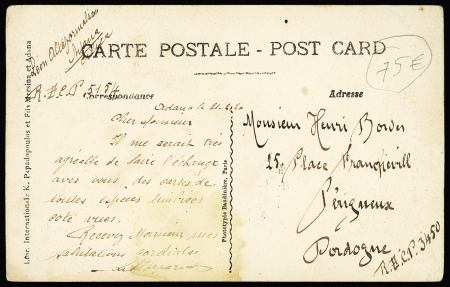 CARTE POSTALE - POST CARD
75€
R.H.C.P. 5154
Correspondance
Adana le
Cher Monsieur
Il me serait très
agréable de faire l'échange
avec vous des cartes de
toutes espèces timbrées
coté vues.
Recevez Monsieur mes
salutations cordiales
Adresse
Monsieur Henri Bordes
25, Place Francheville
Périgueux
Dordogne
R.H.C.P. 3450
Phototypie Baudinière, Paris
Libr. International: K. Papadopoulos et Fils Mersina et Adana